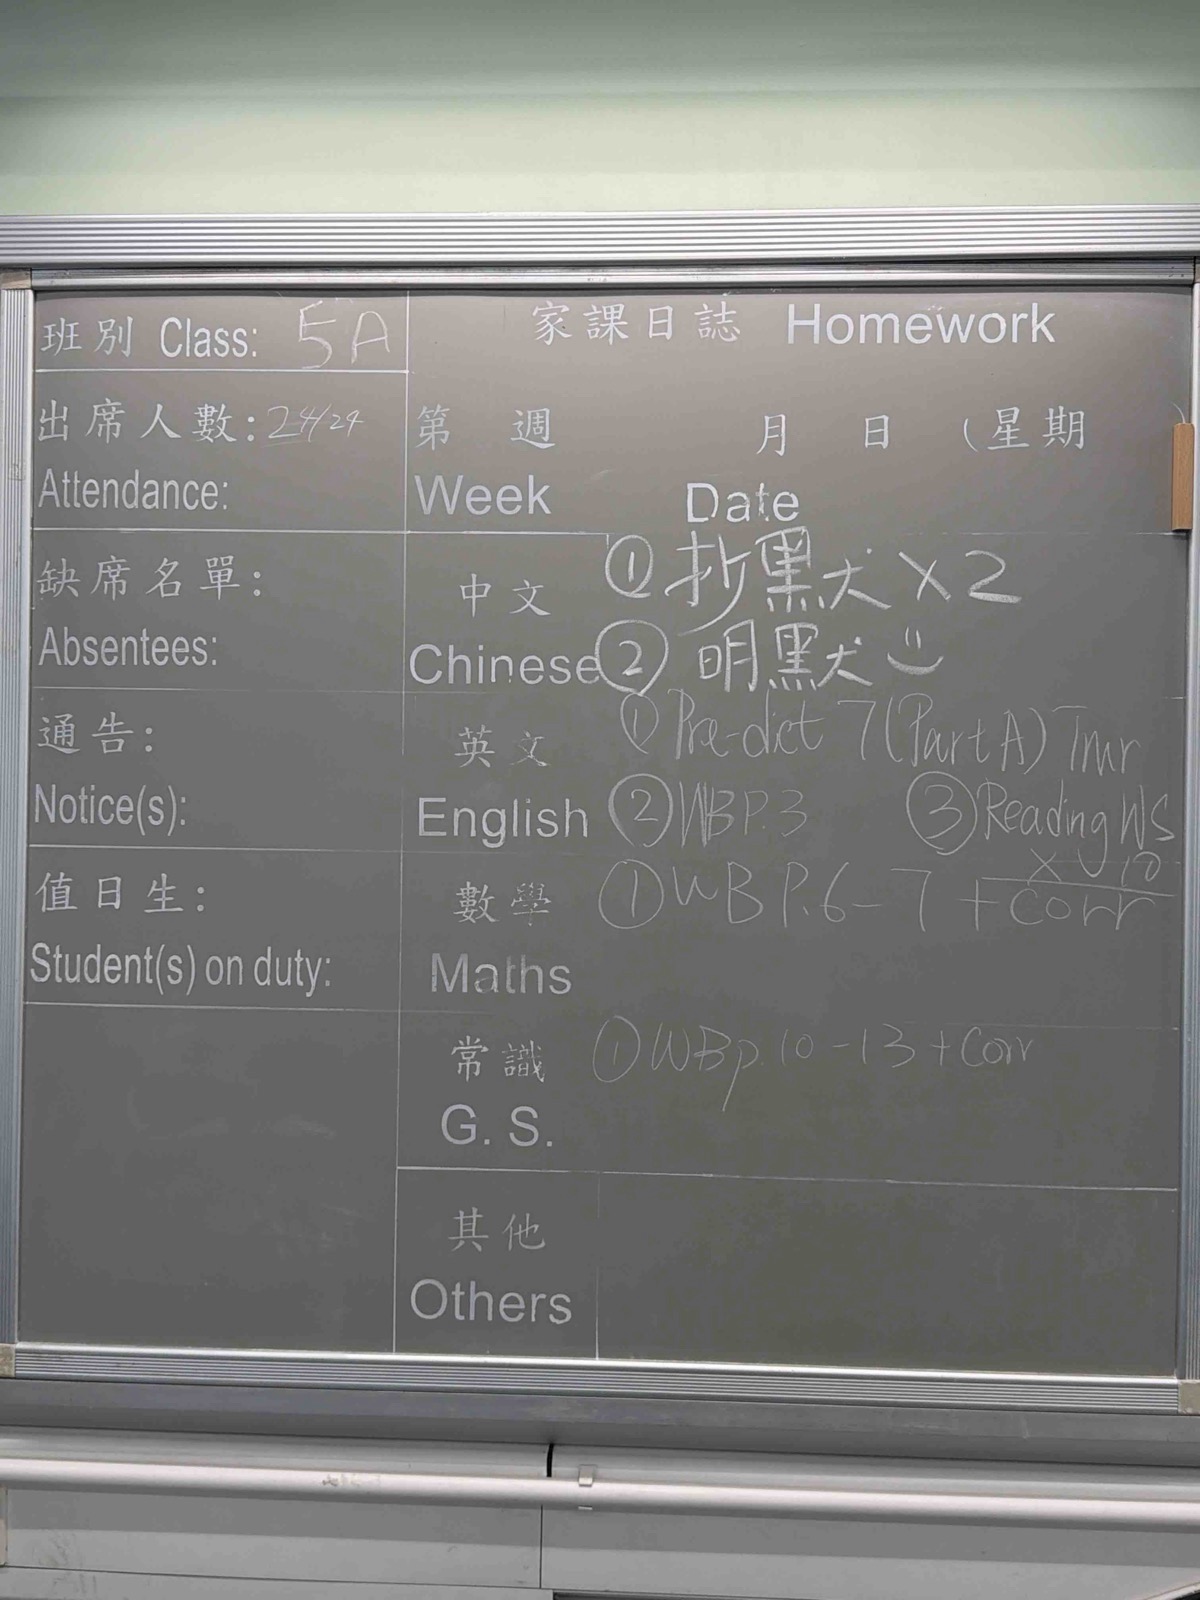 班別 Class: 5A
出席人數: 24/24
Attendance:
缺席名單:
Absentees:
通告:
Notice(s):
值日生:
Student(s) on duty:
家課日誌 Homework
第 週 月 日 (星期
Week Date
中文 ① 抄黑犬 X2
Chinese ② 明黑犬
英文 ① Pre-dict 7 (Part A) Tmr
English ② WB P.3 ③ Reading WS
X 10
數學 ① WB P.6-7 + Corr
Maths
常識 ① WB p.10-13 + Corr
G. S.
其他
Others